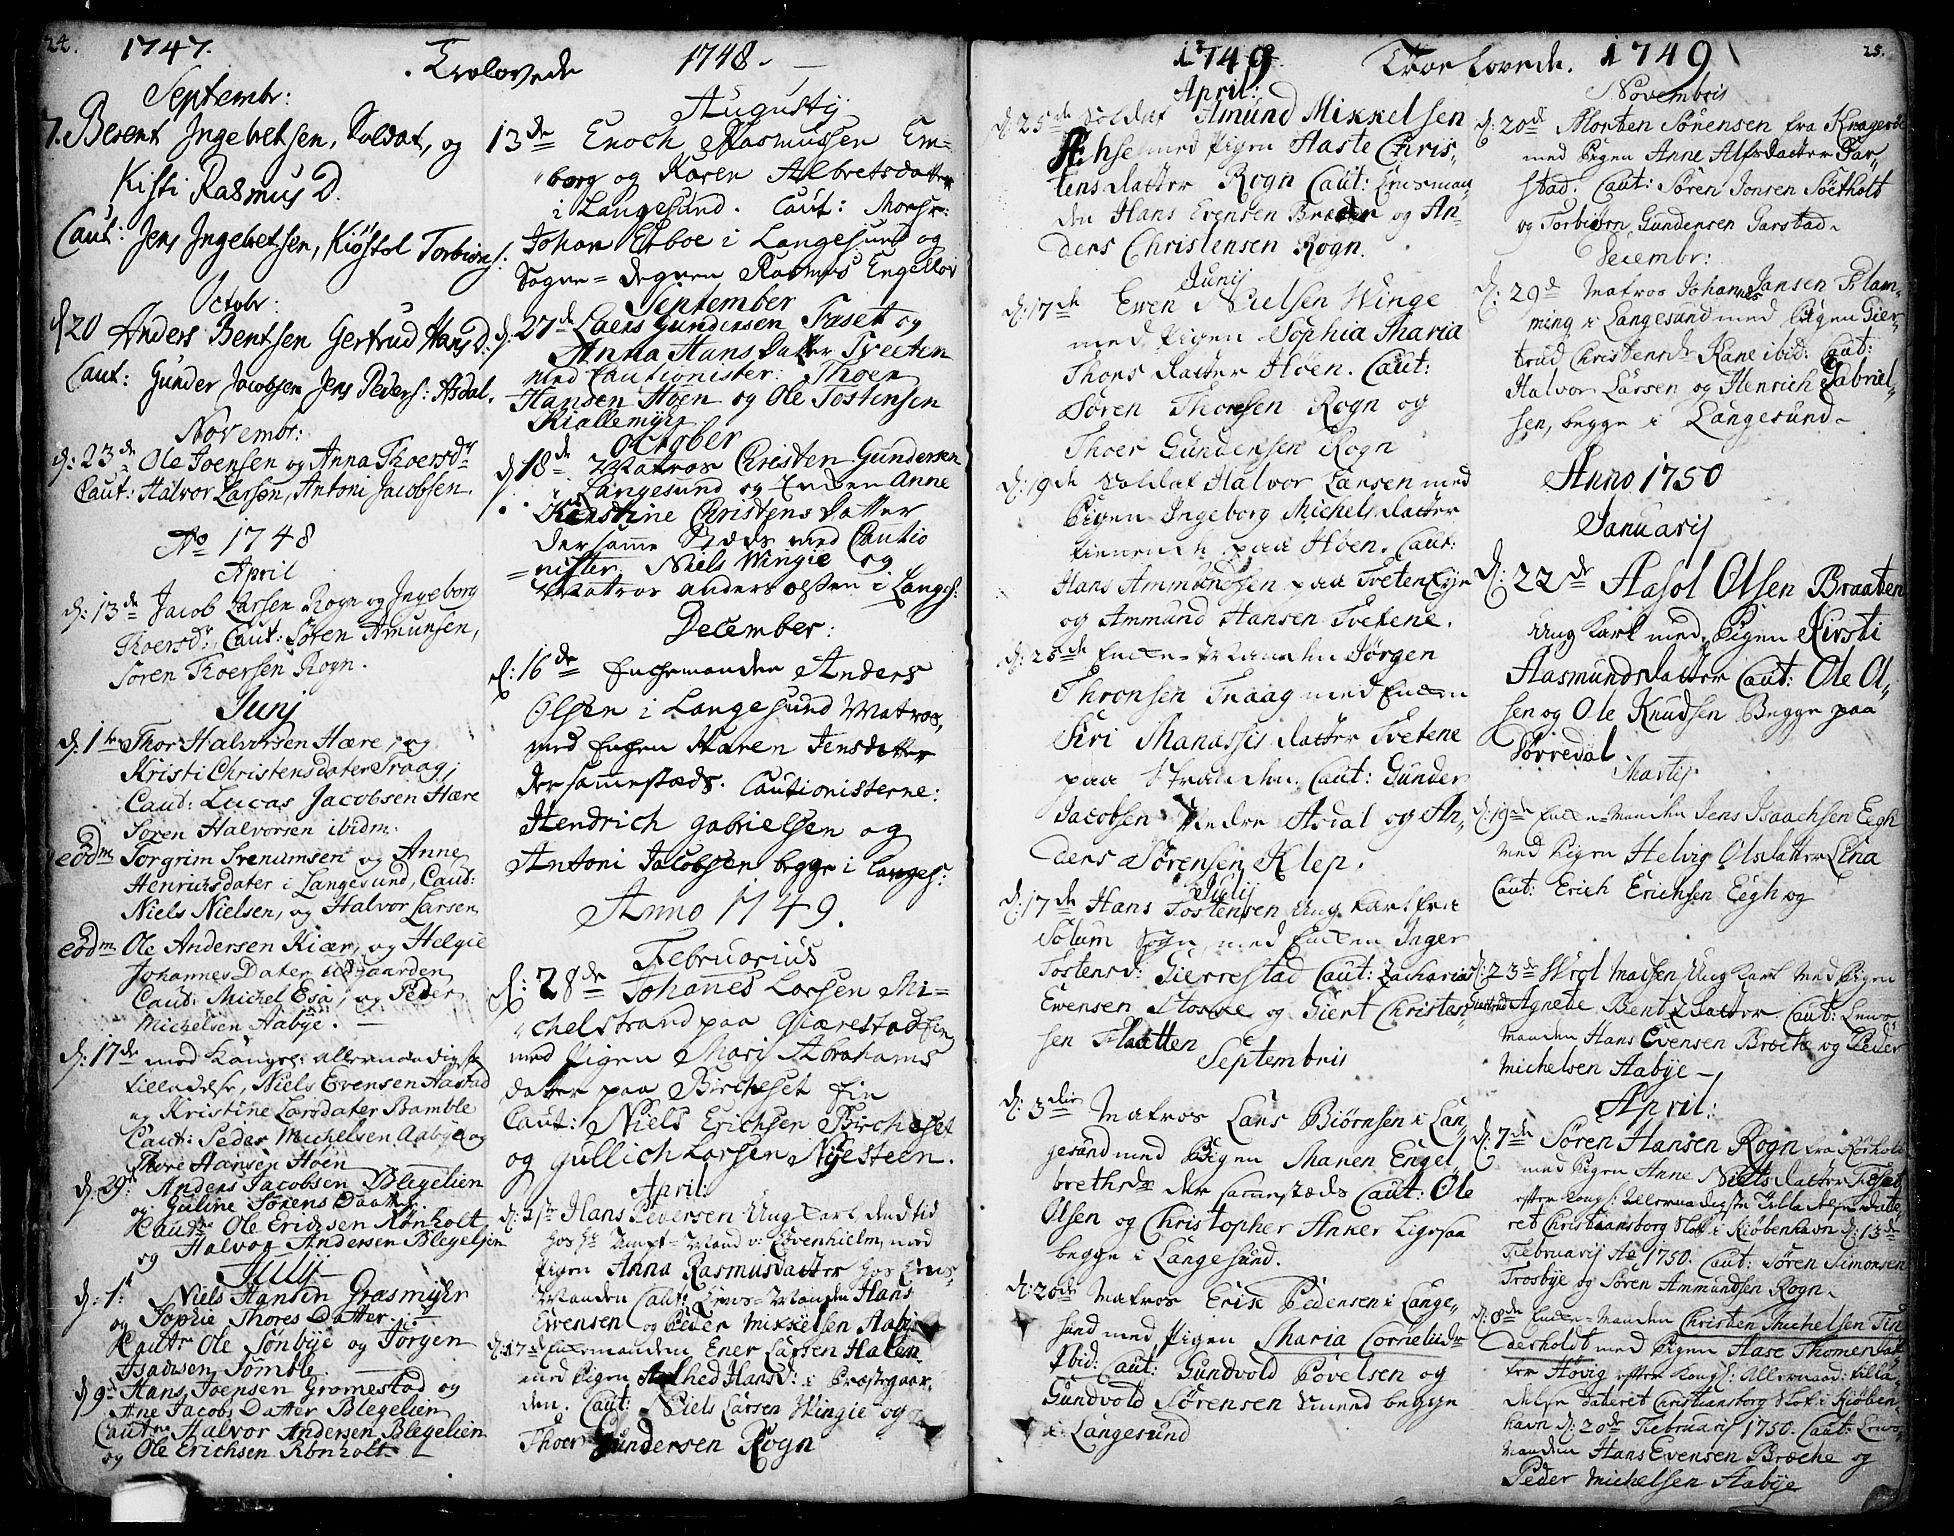 24.
1747.
Trolovede
Septembr:
7. Berent Ingebretsen, Soldat, og
Kisti Rasmus D.
Caut: Jens Ingebretsen, Kiøstol Torbiørns:
Octobr:
d 20 Anders Bentsen Gertrud Hans D:
Caut: Gunder Jacobsen Jens Peders: Asdal.
Novembr:
d: 23de Ole Joensen og Anna Thoersdr
Caut: Halvor Larsen, Antoni Jacobsen.
Ao 1748
April
d: 13de Jacob Larsen Rogn og Ingeborg
Thoersdr, Caut: Søren Amunsen,
Søren Thoersen Rogn.
Junj
d. 1te Thor Halvorsen Hære, og
Kristi Christensdater Traag,
Caut: Lucas Jacobsen Hære
Søren Halvorsen ibidm.
eodm Torgrim Svenumsen og Anne
Henrichsdater i Langesund, Caut:
Niels Nielsen, og Halvor Larsen
eodm Ole Andersen Kiær, og Helgie
Johannes Dater
Caut: Michel Esa, og Peder
Michelsen Aabye.
d. 17de med Kongel: allernaadigste
tilladelse, Niels Evensen Aastad
og Kristine Larsdater Bamble
Caut: Peder Michelsen Aabye og
Thore Hansen Høen
d: 29de Anders Jacobsen Blegelien
og Guline Sørens Daatter
Caut: Ole Erichsen Rønholt
og Halvor Andersen Blegelien
Julij
d: 1te Niels Hansen Grasmyhr
og Sophie Thores Datter
Cautr Ole Sønbye og Jørgen
Isachsen Tømble
d 9de Hans Joensen Gromestad og
Ane Jacobs Datter Blegelien
Cautr Halvor Andersen Blegelien
og Ole Erichsen Rønholt
1748.
Augustj
13de Enoch Rasmussen Em=
borg og Karen Albretsdatter
i Langesund. Caut: Monsr:
Johan Etboe i Langesund og
Sogne=degnen Rasmus Engelløv
September
d: 27de Laers Gundersen Traset og
Anna Hans Datter Tveeten
med Cautionister: Thoer
Hansen Høen og Ole Tostensen
Kiallemyhr
October
d 18de Matros Christen Gundersen
i Langesund og Enken Anne
Kirstine Christens Datter
der samme Steds med Cautio
=nister Niels Wingie og
Matros anders olssen i Langes:
December:
d: 16de Enchemanden Anders
Olsen i Langesund Matros,
med Enchen Karen Jensdatter
der sammestæds. Cautionisterne:
Hendrich gabrielsen og
Antoni Jacobsen begge i Langes:
Anno 1749.
Februarius
d: 28de Johanes Larsen Mi=
chelstrand paa Giærestad Ein
med Pigen Mari Abrahams
datter paa Bircheset Ein
Caut: Niels Erichsen Bircheset
og Gullich Larsen Nyesteen.
April:
d: 1ste Hans Pedersen Ung Karl, dend tid
hos Hr Ampt=Mand v: Løvenhielm, med
Pigen Anna Rasmusdatter hos Lens
Manden Caut: Lens=Manden Hans
Evensen og Peder Mikkelsen Aabye
d: 17de Enkemanden Ener Larsen Halen
med Pigen Aalhed Hansd: i Præstegaar,
den. Caut: Niels Larsen Wingie og
Thoer Gundersen Rogn
1749
Troelovede.
April:
d: 25de Soldat Amund Mikkelsen
Aschse med Pigen Haste Chris,
tensdatter Rogn Caut: Lensman
den Hans Evensen Brække og An=
ders Christensen Rogn.
Junij
d: 17de Ewen Nielsen Winge
med Pigen Sophia Maria
Thorsdatter Høen. Caut:
Søren Thoresen Rogn og
Thoer Gundersen Rogn
d: 19de Soldat Halvor Larsen med
Pigen Ingeborg Michelsdatter
tienende paa Høen. Caut:
Hans Ammundsen paa Tveten Eje
og Ammund Hansen Tvetene.
d: 26de Enke=Manden Jørgen
Thronsen Traag med Enken
Siri Manassisdatter Tvetene
paa Stranden. Caut: Gunder
Jacobsen Nedre Asdal og An,
ders Sørensen Klep.
Julij
d: 17de Hans Tostensen Ung Karl fra
Solum Sogn, med Enken Inger
Tostensd: Gierrestad Caut: Zacharias
Evensen Stokke og Giert Christen
sen Flaatten
Septembris
d: 3die Matros Lars Biørnsen i Lan,
gesund med Pigen Maren Engel,
brethsdr der samestæds Caut: Ole
Olsen og Christopher Anker Ligosaa
begge i Langesund.
d: 20de Matros Erik Pedersen i Lange,
sund med Pigen Maria Corneliidr
Ibid: Caut: Gundvold Povelsen og
Gundvold Sørensen Smend begge
i Langesund
1749
25.
Novembris
d: 20de Morten Sørensen fra Kragerøe
med Pigen Anne Alfsdatter Gar,
stad. Caut: Søren Jonsen Søetholt
og Torbiørn Gundersen Garstad.
Decembr:
d: 29de Matros Johannes Jansen Flam,
ming i Langesund med Pigen Gier,
trud Christensdr Kane ibid: Caut:
Halvor Larsen og Henrich Gabriel,
sen, begge i Langesund.
Anno 1750
Januarij
d: 22de Aasol Olsen Braaten
Ung Karl med Pigen Kirsti
Aasmundsdatter Caut: Ole Ol,
sen og Ole Knudsen Begge paa
Sørredal
Martij
d: 19de Enke=Manden Jens Isaachsen Eegh
med Pigen Helvig Olsdatter Lina
Caut: Erich Erichsen Eegh og
d: 23de Wrol Madsen Ung Karl med Pigen
Giertrud Agnete Bentzdatter. Caut: Lens
manden Hans Evensen Bræcke og Peder
Michelsen Aabye
April:
d: 7de Søren Hansen Rogn fra Rørholt
med Pigen Anne Nielsdatter Fieset
efter Kongl: Allernaadigste Tilladelse date,
ret Christiansborg Slot i Kiøbenhavn d: 13de
Februarij Ao 1750. Caut: Søren Simonsen
Trosbye og Søren Ammundsen Rogn.
d: 8de Enke=Manden Christen Michelsen Tin
derholdt med Pigen Aase Thomesdat
ter Høvig efter Kongl: Allernaad: tilla,
delse dateret Christiansborg Slot i Kiøben,
havn d: 20de Februarij 1750. Caut: Lens,
manden Hans Evensen Bræche og
Peder Michelsen Aabye